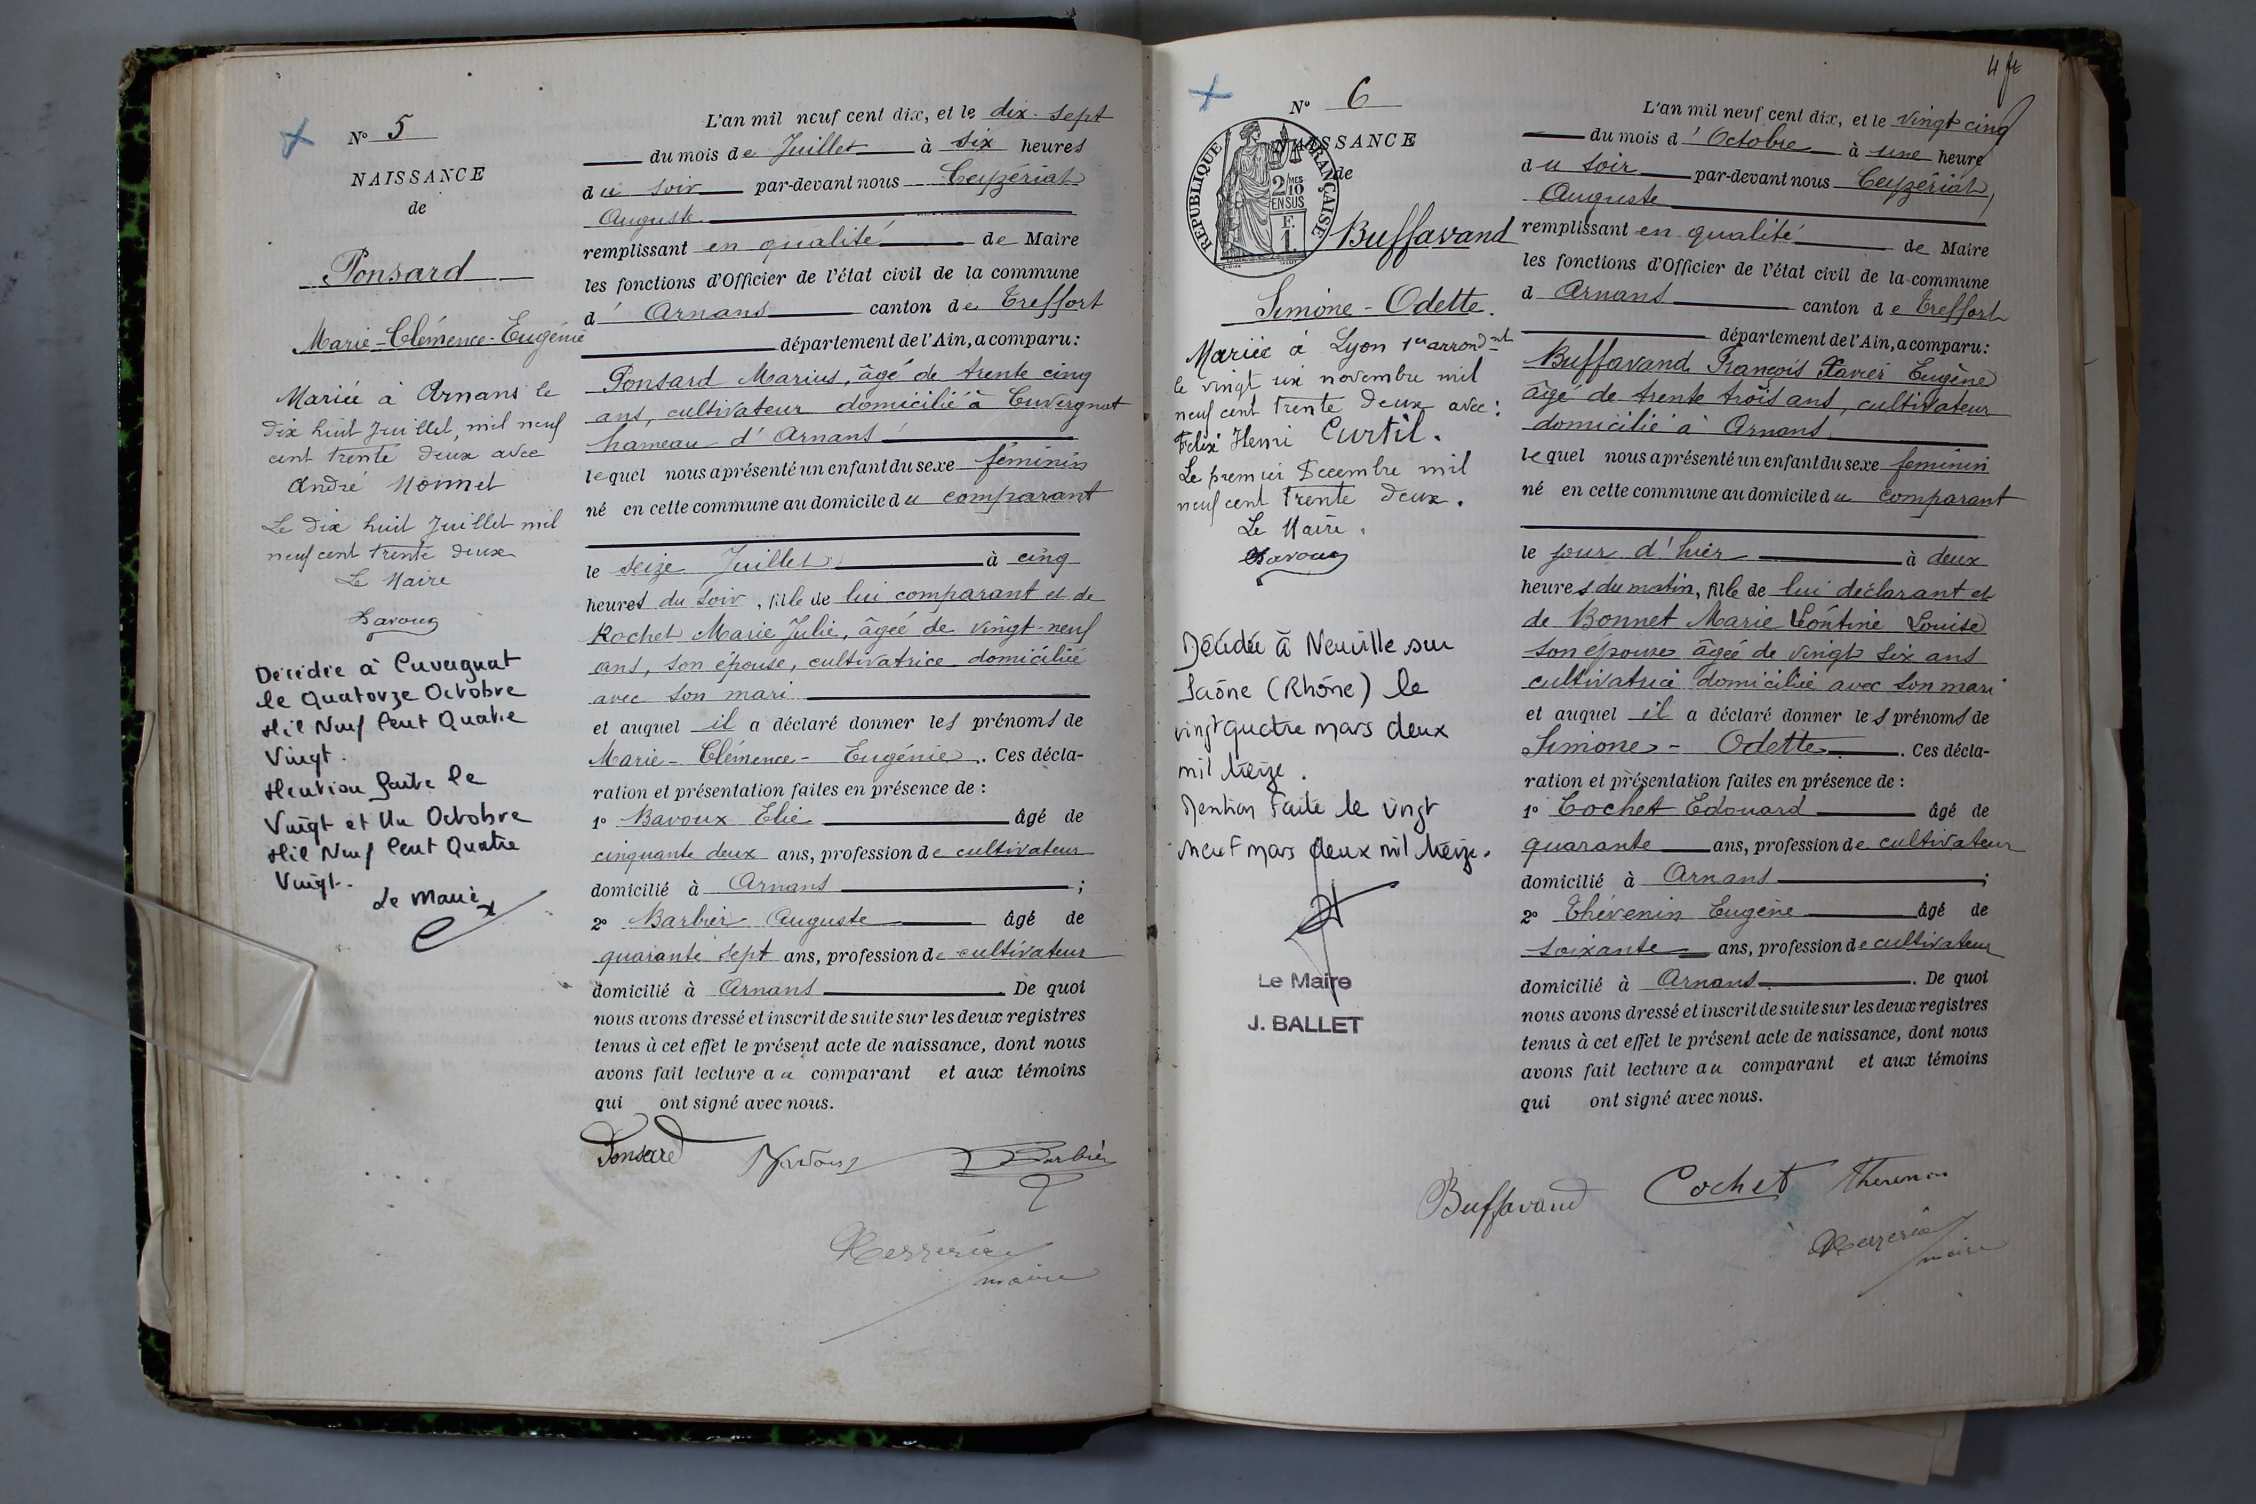 N° 5
NAISSANCE
de
Ponsard
Marie-Clémence-Eugénie
Mariée à Arnans le
dix huit Juillet, mil neuf
cent trente deux avec
André Monnet
Le dix huit Juillet mil
neuf cent trente deux
Le Maire
Décédée à Cuvergnat
le Quatorze Octobre
Mil Neuf Cent Quatre
Vingt.
Mention faite le
Vingt et Un Octobre
Mil Neuf Cent Quatre
Vingt.
Le Maire
L'an mil neuf cent dix, et le dix-sept
du mois de Juillet à six heures
du soir par-devant nous Ceyzériat
Auguste
remplissant en qualité de Maire
les fonctions d'Officier de l'état civil de la commune
d' Arnans canton de Treffort
département de l'Ain, a comparu :
Ponsard Marius, âgé de trente cinq
ans, cultivateur domicilié à Cuvergnat
hameau d'Arnans
lequel nous a présenté un enfant du sexe féminin
né en cette commune au domicile du comparant
le seize Juillet à cinq
heures du soir, fille de lui comparant et de
Rochet Marie Julie, âgée de vingt-neuf
ans, son épouse, cultivatrice domiciliée
avec son mari
et auquel il a déclaré donner les prénoms de
Marie-Clémence-Eugénie. Ces décla-
ration et présentation faites en présence de :
1° Bavoux Elie âgé de
cinquante deux ans, profession de cultivateur
domicilié à Arnans ;
2° Barbier Auguste âgé de
quarante sept ans, profession de cultivateur
domicilié à Arnans De quoi
nous avons dressé et inscrit de suite sur les deux registres
tenus à cet effet le présent acte de naissance, dont nous
avons fait lecture au comparant et aux témoins
qui ont signé avec nous.
Ponsard Bavoux Barbier
maire
4
N° 6
NAISSANCE
de
RÉPUBLIQUE FRANÇAISE
2/10 MES
EN SUS
F.
1.
Buffavand
Simone-Odette.
Mariée à Lyon 1er arrondnt
le vingt six novembre mil
neuf cent trente deux avec :
Félix Henri Curtil.
Le premier Décembre mil
neuf cent trente deux.
Le Maire.
Décédée à Neuville sur
Saône (Rhône) le
vingt quatre mars deux
mil treize.
Mention Faite le vingt
neuf mars deux mil treize.
Le Maire
J. BALLET
L'an mil neuf cent dix, et le vingt cinq
du mois d'Octobre à une heure
du soir par-devant nous Ceyzériat,
Auguste
remplissant en qualité de Maire
les fonctions d'Officier de l'état civil de la commune
d Arnans canton de Treffort
département de l'Ain, a comparu :
Buffavand François Xavier Eugène
âgé de trente trois ans, cultivateur
domicilié à Arnans
lequel nous a présenté un enfant du sexe feminin
né en cette commune au domicile du comparant
le jour d'hier à deux
heures du matin, fille de lui déclarant et
de Bonnet Marie Léontine Louise
son épouse âgée de vingt six ans
cultivatrice domiciliée avec son mari
et auquel il a déclaré donner les prénoms de
Simone-Odette. Ces décla-
ration et présentation faites en présence de :
1° Cochet Edouard âgé de
quarante ans, profession de cultivateur
domicilié à Arnans ;
2° Thévenin Eugène âgé de
soixante ans, profession de cultivateur
domicilié à Arnans. De quoi
nous avons dressé et inscrit de suite sur les deux registres
tenus à cet effet le présent acte de naissance, dont nous
avons fait lecture au comparant et aux témoins
qui ont signé avec nous.
Buffavand Cochet Thevenin
maire